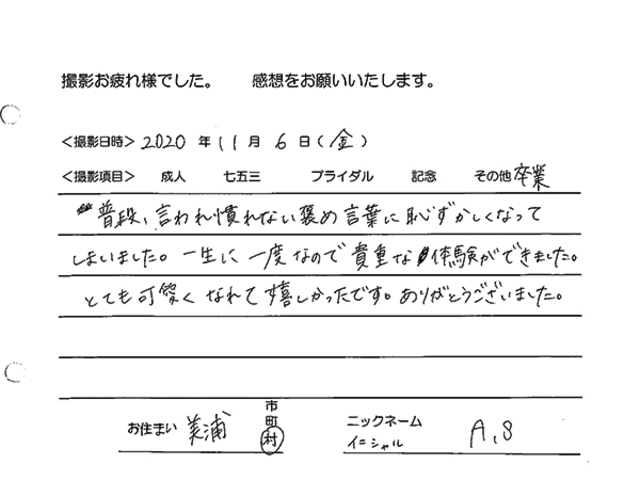 撮影お疲れ様でした。 感想をお願いいたします。
<撮影日時> 2020 年 11 月 6 日 (金)
<撮影項目> 成人 七五三 ブライダル 記念 その他 卒業
普段、言われ慣れない褒め言葉に恥ずかしくなって
しまいました。一生に一度なので貴重な体験ができました。
とても可愛くなれて嬉しかったです。ありがとうございました。
お住まい 美浦 市 町 村
ニックネーム イニシャル A,S